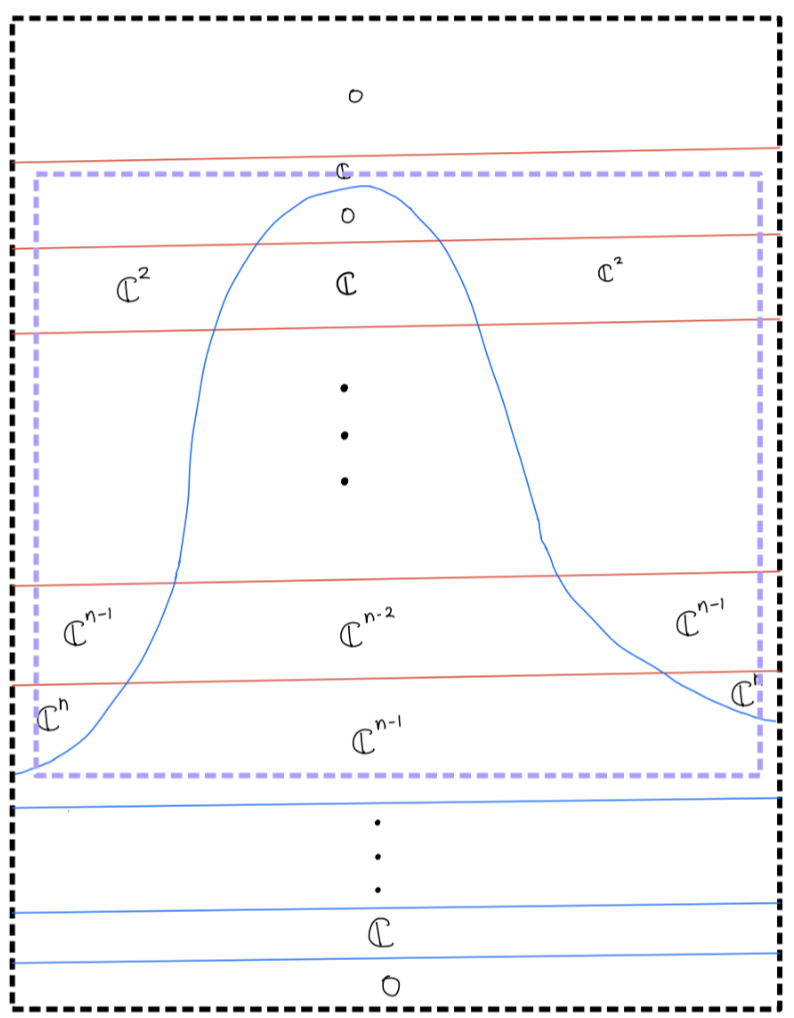 0
ℂ
0
ℂ² ℂ ℂ²
ℂⁿ⁻¹ ℂⁿ⁻² ℂⁿ⁻¹
ℂⁿ ℂⁿ⁻¹ ℂⁿ
ℂ
0